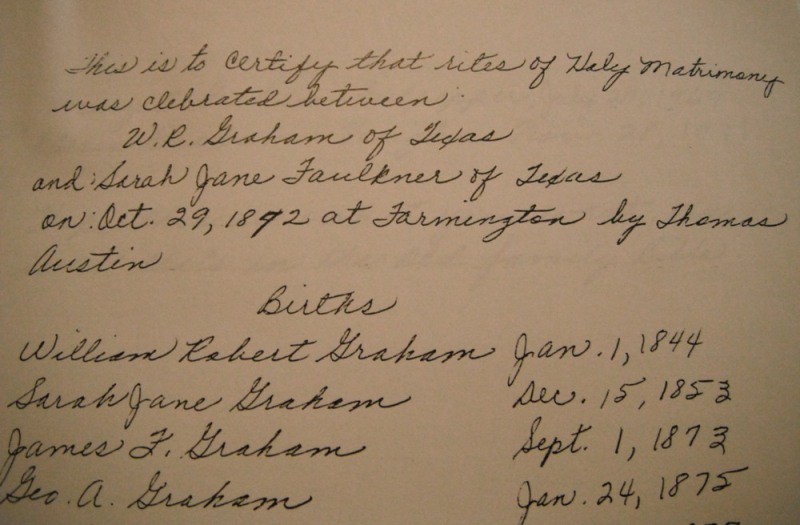 This is to certify that rites of Holy Matrimony
was clebrated between
W.R. Graham of Texas
and: Sarah Jane Faulkner of Texas
on: Oct. 29, 1872 at Farmington by Thomas
Austin
Births
William Robert Graham Jan. 1, 1844
Sarah Jane Graham Dec. 15, 1853
James F. Graham Sept. 1, 1873
Geo. A. Graham Jan. 24, 1875